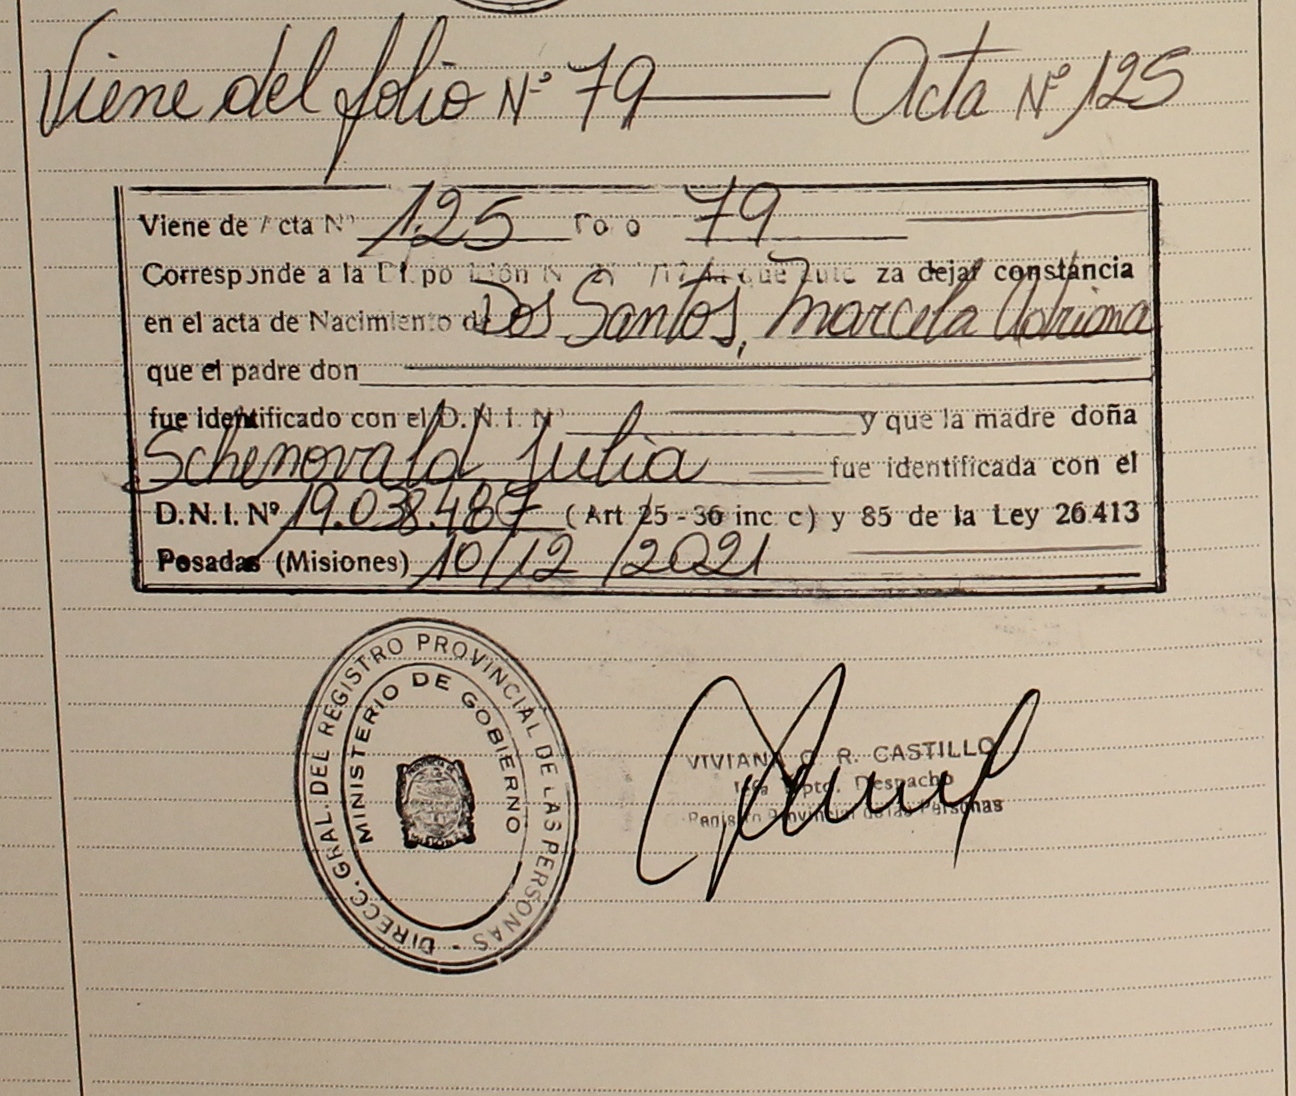 Viene del folio Nº 79 — Acta Nº 125
Viene de Acta Nº 125 79
Corresponde a la za dejar constancia
en el acta de Nacimiento de Dos Santos, Marcela Adriana
que el padre don
fue identificado con el D.N.I. Nº y que la madre doña
Schenovald Julia fue identificada con el
D.N.I. Nº 19.038.487 (Art 25-36 inc c) y 85 de la Ley 26.413
Posadas (Misiones) 10/12/2021
DIRECC. GRAL. DEL REGISTRO PROVINCIAL DE LAS PERSONAS -
MINISTERIO DE GOBIERNO
R. CASTILLO
Dpto. Despacho
Registro Provincial de las Personas